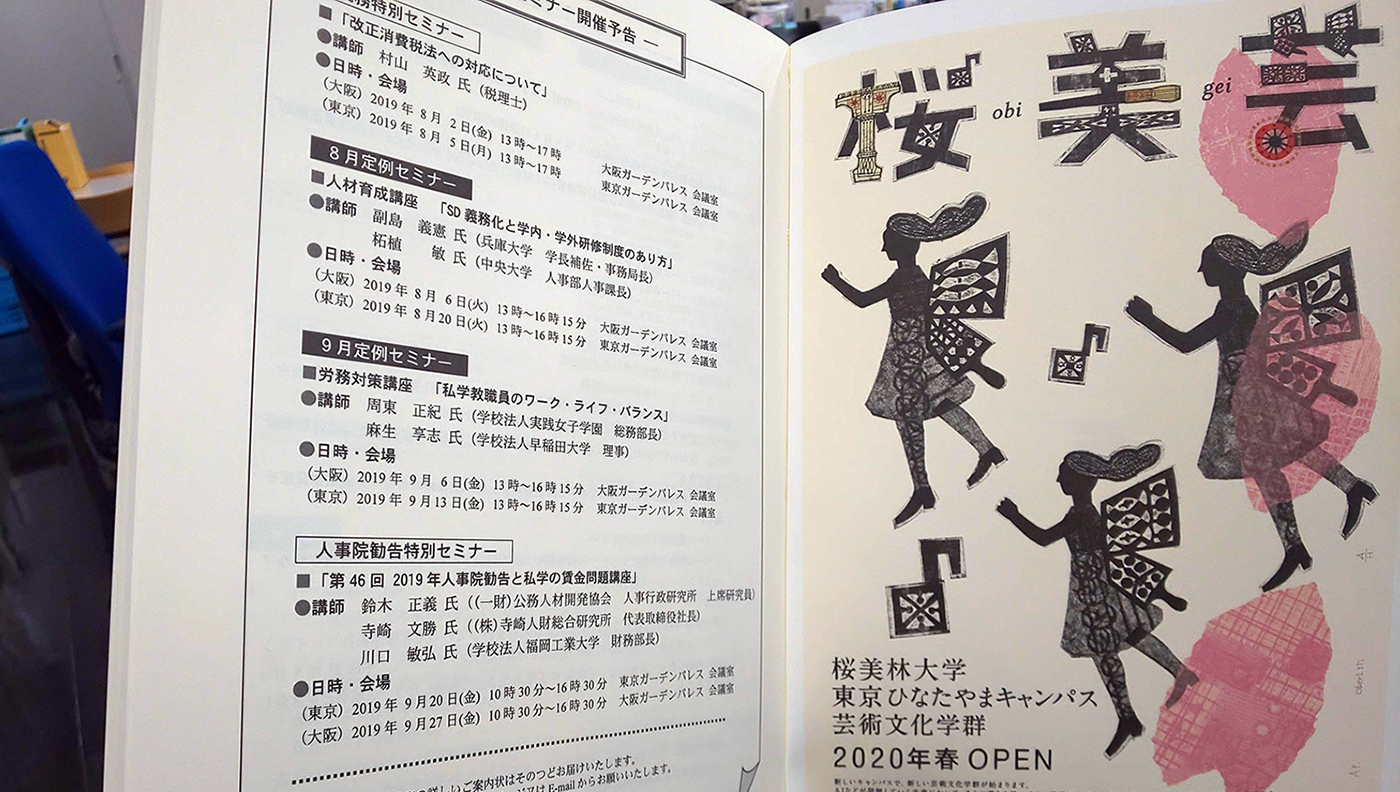 ミナー開催予告 ―
務特別セミナー
■「改正消費税法への対応について」
●講師 村山 英政 氏（税理士）
●日時・会場
（大阪）2019年 8月 2日(金) 13時～17時 大阪ガーデンパレス 会議室
（東京）2019年 8月 5日(月) 13時～17時 東京ガーデンパレス 会議室
8月定例セミナー
■人材育成講座 「SD義務化と学内・学外研修制度のあり方」
●講師 副島 義憲 氏（兵庫大学 学長補佐・事務局長）
柘植 敏 氏（中央大学 人事部人事課長）
●日時・会場
（大阪）2019年 8月 6日(火) 13時～16時15分 大阪ガーデンパレス 会議室
（東京）2019年 8月20日(火) 13時～16時15分 東京ガーデンパレス 会議室
9月定例セミナー
■労務対策講座 「私学教職員のワーク・ライフ・バランス」
●講師 周東 正紀 氏（学校法人実践女子学園 総務部長）
麻生 享志 氏（学校法人早稲田大学 理事）
●日時・会場
（大阪）2019年 9月 6日(金) 13時～16時15分 大阪ガーデンパレス 会議室
（東京）2019年 9月13日(金) 13時～16時15分 東京ガーデンパレス 会議室
人事院勧告特別セミナー
■「第46回 2019年人事院勧告と私学の賃金問題講座」
●講師 鈴木 正義 氏（(一財)公務人材開発協会 人事行政研究所 上席研究員）
寺崎 文勝 氏（(株)寺崎人財総合研究所 代表取締役社長）
川口 敏弘 氏（学校法人福岡工業大学 財務部長）
●日時・会場
（東京）2019年 9月20日(金) 10時30分～16時30分 東京ガーデンパレス 会議室
（大阪）2019年 9月27日(金) 10時30分～16時30分 大阪ガーデンパレス 会議室
の詳しいご案内状はそのつどお届けいたします。
又は E-mail からお願いいたします。
桜 obi 美 gei 芸
桜美林大学
東京ひなたやまキャンパス
芸術文化学群
2020年春 OPEN
新しいキャンパスで、新しい芸術文化学群が始まります。